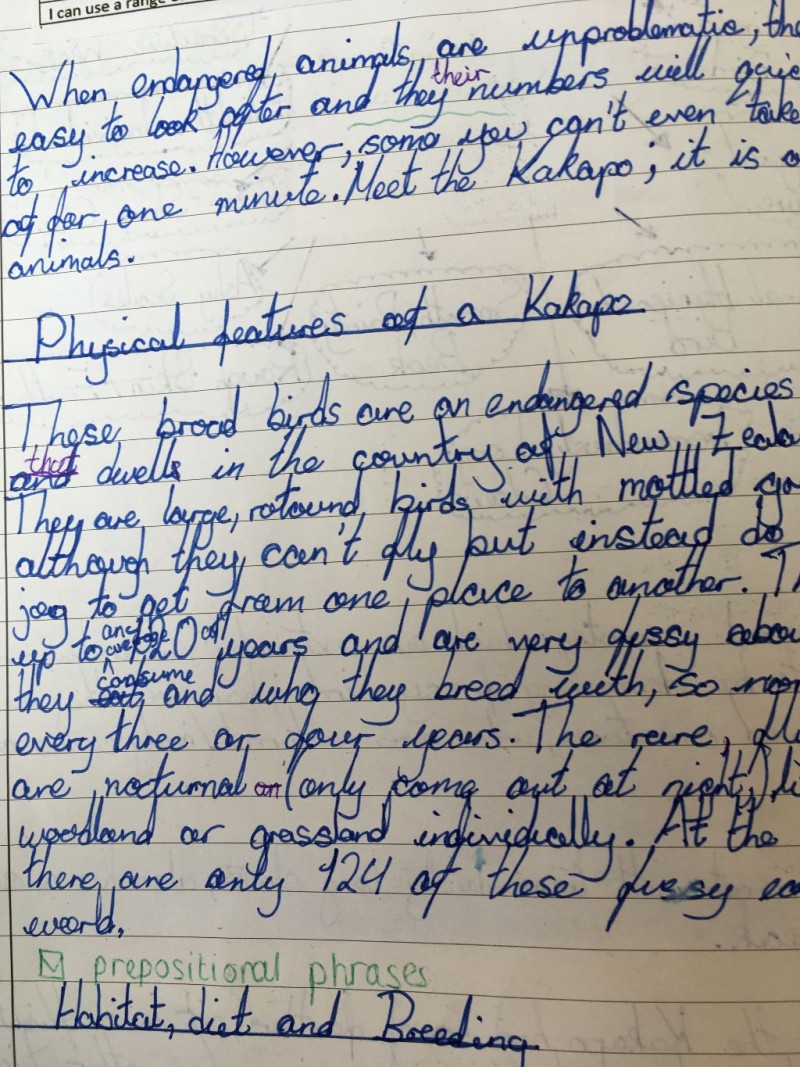 I can use a range
When endangered animals are unproblematic, the
easy to look after and they their numbers will quic
to increase. However, some you can't even take
of for one minute. Meet the Kakapo; it is o
animals.
Physical features of a Kakapo
These broad birds are an endangered species
and that dwells in the country of New Zeala
They are large, rotound birds with mottled g
although they can't fly but instead do
jog to get from one place to another. Th
up to an average of 120 years and are very fussy abou
they eat consume and who they breed with, so
every three or four years. The rare, fl
are nocturnal (only come out at night,) li
woodland or grassland individically. At the
there are only 124 of these fussy ea
world.
☑ prepositional phrases
Habitat, diet and Breeding